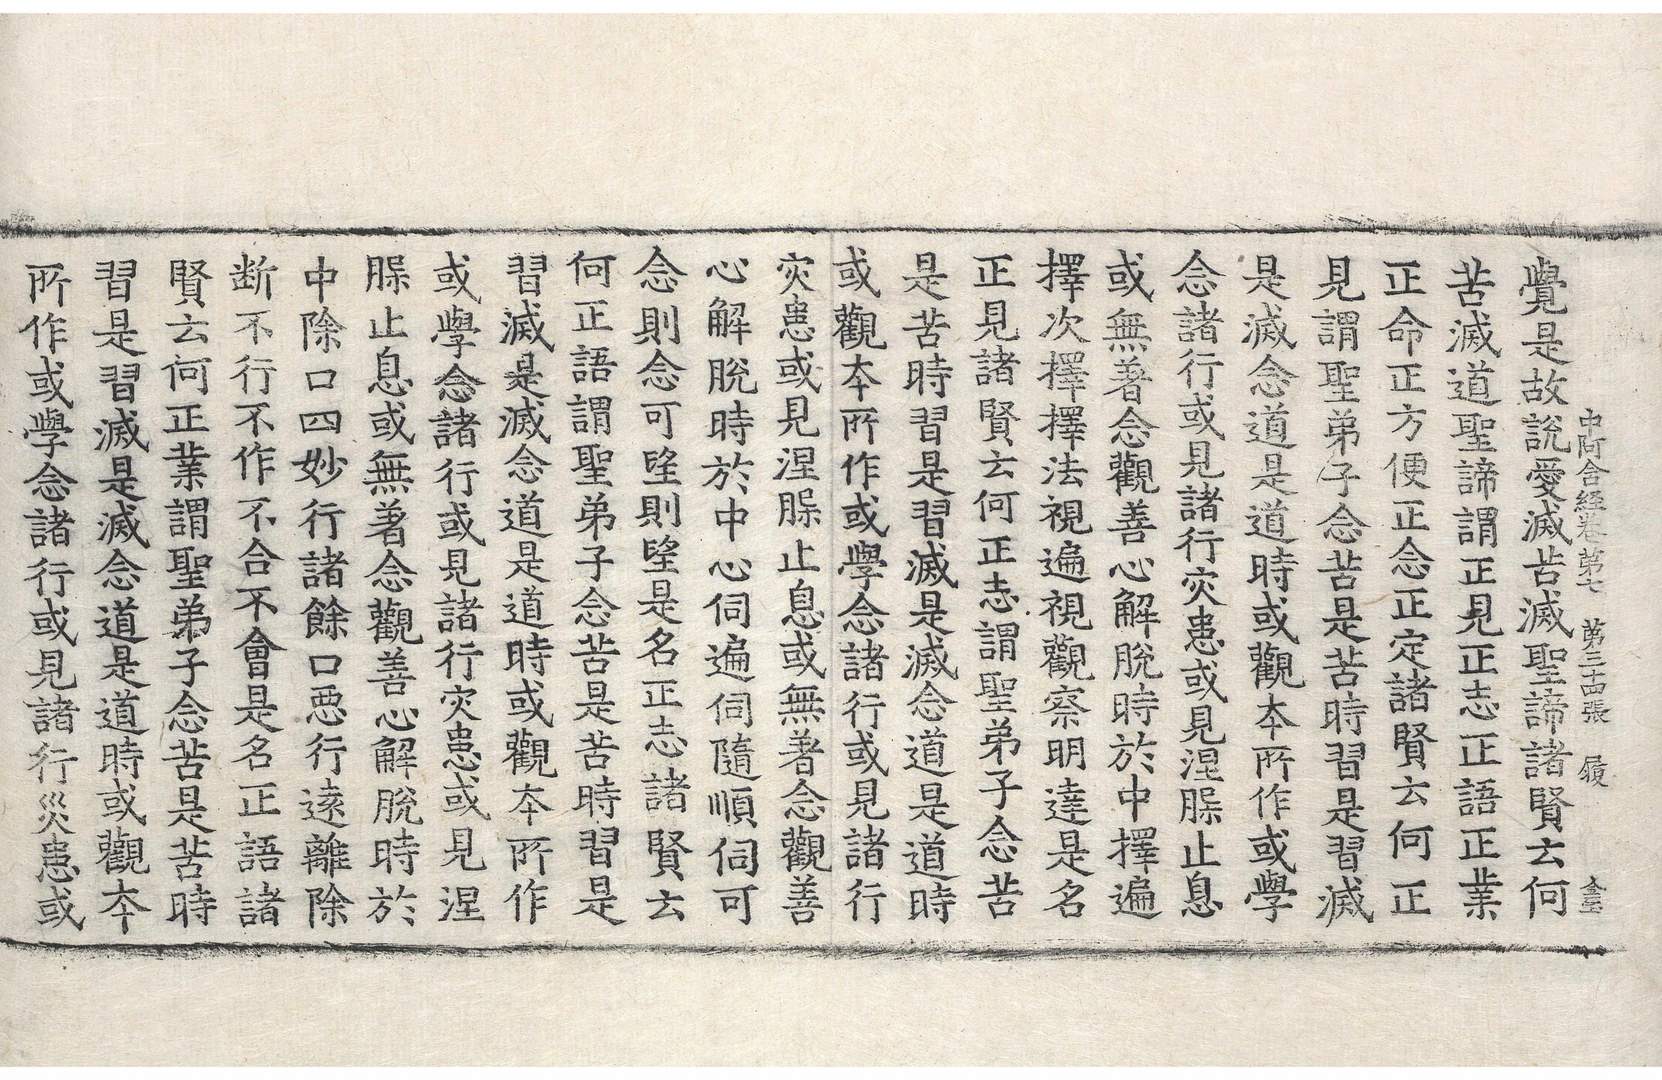 中阿含経卷第七　第三十四張　履
覺是故說愛滅苦滅聖諦諸賢云何
苦滅道聖諦謂正見正志正語正業
正命正方便正念正定諸賢云何正
見謂聖弟子念苦是苦時習是習滅
是滅念道是道時或觀本所作或學
念諸行或見諸行灾患或見涅槃止息
或無著念觀善心解脫時於中擇遍
擇次擇擇法視遍視觀察明達是名
正見諸賢云何正志謂聖弟子念苦
是苦時習是習滅是滅念道是道時
或觀本所作或學念諸行或見諸行
灾患或見涅槃止息或無著念觀善
心解脫時於中心伺遍伺隨順伺可
念則念可望則望是名正志諸賢云
何正語謂聖弟子念苦是苦時習是
習滅是滅念道是道時或觀本所作
或學念諸行或見諸行灾患或見涅
槃止息或無著念觀善心解脫時於
中除口四妙行諸餘口惡行遠離除
断不行不作不合不會是名正語諸
賢云何正業謂聖弟子念苦是苦時
習是習滅是滅念道是道時或觀本
所作或學念諸行或見諸行災患或